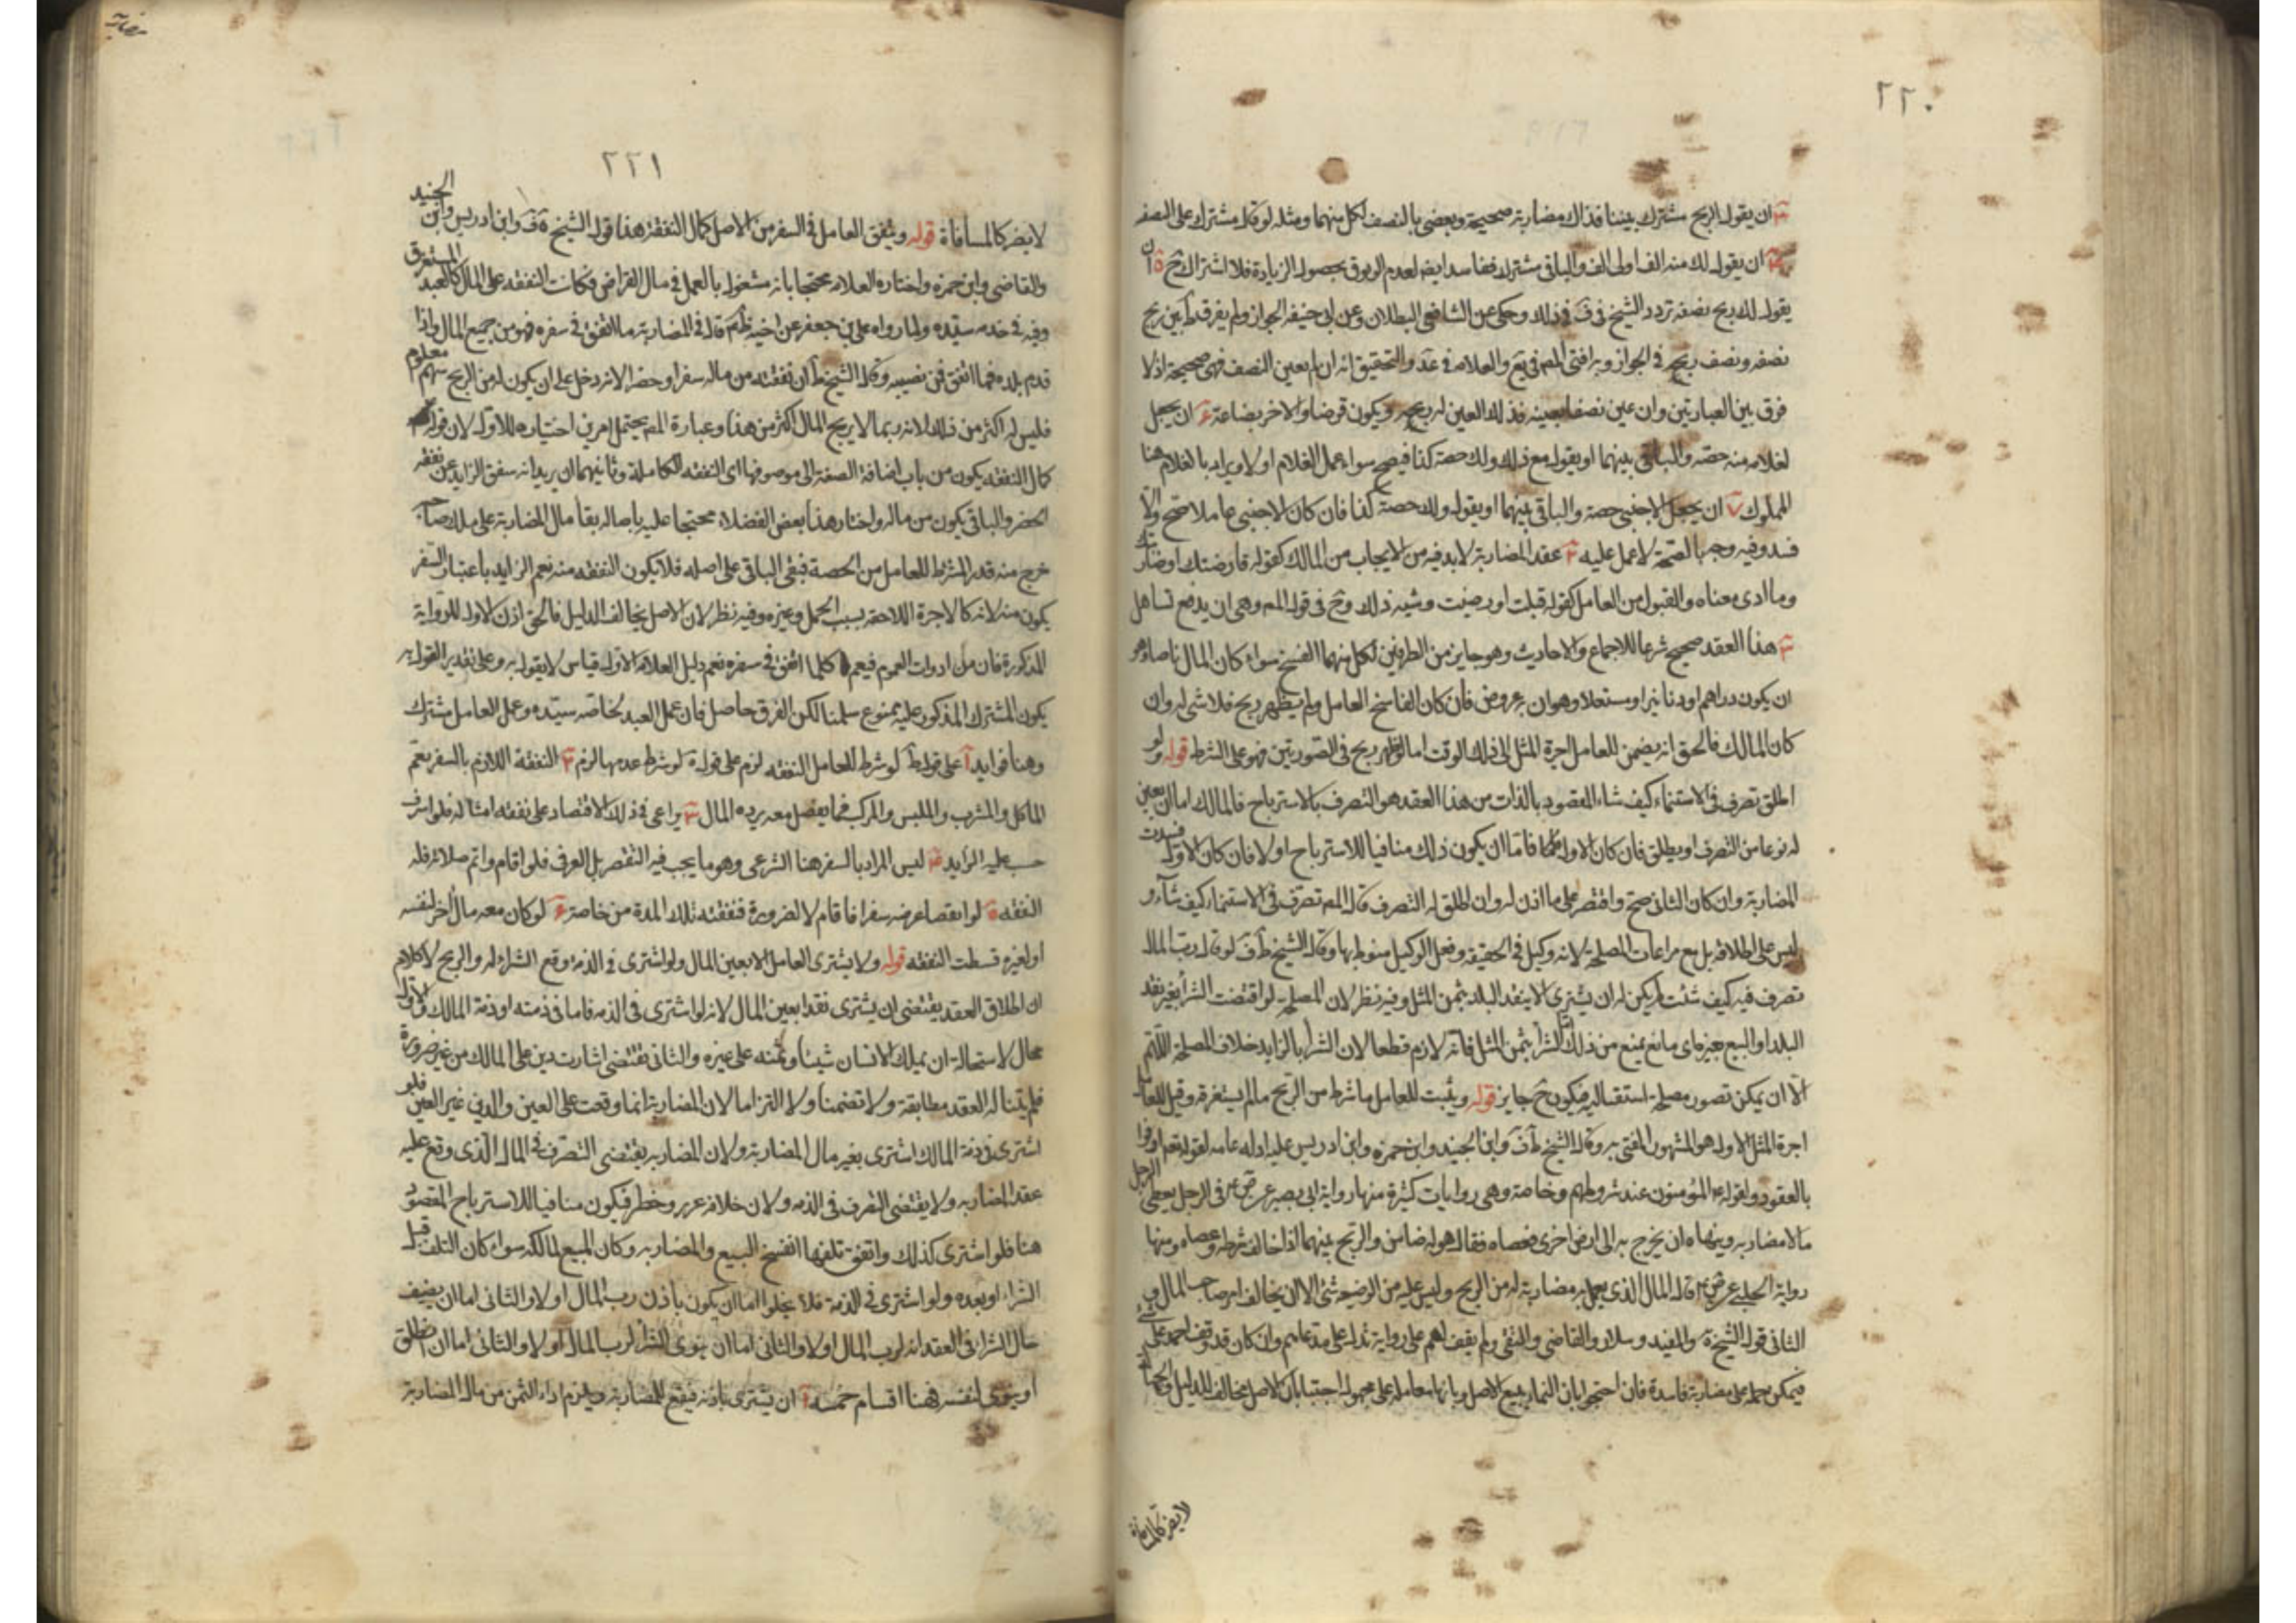 ٢٢٠
ان يقول الربح مشترك بيننا فذاك مضاربة صحيحة ويقضى بالنصف لكل منهما ومثله لو قال مشترك على النصف
ان يقول لك منه الف اولى الف والباقى مشترك ففاسد ايضا لعدم الوثوق بحصول الزيادة فلا اشتراك ح ٥ ان
يقول لك ربح نصفه تردد الشيخ فى ف فى ذلك وحكى عن الشافعى البطلان وعن ابى حنيفه الجواز ولم يفرق ط بين ربح
نصفه ونصف ربحه فى الجواز وبه افتى المص فى يع والعلامه فى عد والتحقيق انه ان لم يعين النصف فهى صحيحة اذ لا
فرق بين العبارتين وان عين نصفا بعينه فذلك العين له ربحه ويكون قرضا والاخر بضاعة ٦ ان يجعل
لغلامه منه حصه والباقى بينهما او يقول مع ذلك ولك حصة كذا فيصح سواء عمل الغلام او لا ويراد بالغلام هنا
المملوك ٧ ان يجعل لاجنبى حصة والباقى بينهما او يقول ولك حصة كذا فان كان الاجنبى عاملا صح والا
فسد وفيه وجه بالصحة لا عمل عليه ٢ عقد المضاربة لا بد فيه من الايجاب من المالك كقوله قارضتك او ضاربتك
وما ادى معناه والقبول من العامل كقوله قبلت او رضيت وشبه ذلك وح فى قول المص وهى ان يدفع تساهل
٣ هذا العقد صحيح شرعا للاجماع والاحاديث وهو جايز من الطرفين لكل منهما الفسخ سواء كان المال ناضا وهو
ان يكون دراهم او دنانير او مستعلا وهو ان بعروض فان كان الفاسخ العامل ولم يظهر ربح فلا شى له وان
كان المالك فالحق انه يضمن للعامل اجرة المثل الى ذلك الوقت اما لو ظهر ربح فى الصورتين فهو على الشرط قوله ولو
اطلق تصرف فى الاستنماء كيف شاء المقصود بالذات من هذا العقد هو التصرف بالاسترباح فالمالك اما ان يعين
له نوعا من التصرف او يطلق فان كان الاول فاما ان يكون ذلك منافيا للاسترباح او لا فان كان الاول فسدت
المضاربة وان كان الثانى صح واقتصر على ما اذن له وان اطلق له التصرف قال المص تصرف فى الاستنماء كيف شاء و
ليس على اطلاقه بل مع مراعات المصلحة لانه وكيل فى الحقيقه وفعل الوكيل منوط بها وقال الشيخ ط ف لو قال رب المال
تصرف فيه كيف شئت لم يكن له ان يشترى الا بنقد البلد بثمن المثل وفيه نظر لان المصلحة لو اقتضت الشرا بغير نقد
البلد او البيع بغيره اى مانع يمنع من ذلك اما الشرا بثمن المثل فانه لازم قطعا لان الشرا بالزايد خلاف المصلحة اللهم
الا ان يمكن تصور مصلحة استقباليه فيكون ح جايز قوله ويثبت للعامل ما شرط من الربح ما لم يستغرقه وقيل للعامل
اجرة المثل الاول هو المشهور المفتى به وقال الشيخ ط ف وابن الجنيد وابن حمزه وابن ادريس عليه ادله عامه لقوله تعم اوفوا
بالعقود ولقوله ع المؤمنون عند شروطهم وخاصة وهى روايات كثيرة منها رواية ابى بصير عن ص ع فى الرجل يعطى الرجل
مالا مضاربه وينهاه ان يخرج به الى ارض اخرى فعصاه فقال هو له ضامن والربح بينهما اذا خالف شرطه وعصاه ومنها
رواية الحلبى عن ص ع قال المال الذى يعمل به مضاربة له من الربح وليس عليه من الوضيعة شئ الا ان يخالف امر صاحب المال و
الثانى قول الشيخ ة والمفيد وسلار والقاضى والتقى ولم يقف لهم على رواية تدل على مدعاهم وان كان قد وقف احد على شئ
فيمكن حمله على مضاربة فاسدة فان احتجوا بان النماء يتبع الاصل وبانها معاملة على مجهول اجبنا بان الاصل يخالف للدليل والجهالة
لا يضر كالمساقاة
٢٢١
لا يضر كالمساقاة قوله وينفق العامل فى السفر من الاصل كمال النفقة هذا قول الشيخ ة ف وابن ادريس وابن الجنيد
والقاضى وابن حمزه واختاره العلامه محتجا بانه مشغول بالعمل فى مال القراض فكانت النفقه على المال كالعبد المستغرق
وفيه فى خدمه سيده ولما رواه على بن جعفر عن اخيه كاظم قال فى المضاربة ما انفق فى سفره فهو من جميع المال واذا
قدم بلده فما انفق فمن نصيبه وقال الشيخ ط ان نفقته من ماله سفرا وحضرا لانه دخل على ان يكون له من الربح سهم معلوم
فليس له اكثر من ذلك لانه ربما لا يربح المال اكثر من هذا وعبارة المص يحتمل امرين اختياره للاول لان قوله
كمال النفقه يكون من باب اضافة الصفة الى موصوفها اى النفقه الكاملة وثانيهما ان يريد انه ينفق الزايد عن نفقه
الحضر والباقى يكون من ماله واختار هذا بعض الفضلاء محتجا عليه باصاله بقاء مال المضاربة على ملك صاحبه
خرج منه قدر الشرط للعامل من الحصة فبقى الباقى على اصله فلا يكون النفقه منه نعم الزايد باعتبار السفر
يكون منه لانه كالاجرة اللاحقه بسبب الحمل وغيره وفيه نظر لان الاصل يخالف الدليل فالحق اذن الاول للرواية
المذكورة فان من ادوات العموم فيعم كلما انفق فى سفره نعم دليل العلامه الاول قياس لا يقول به وعلى تقدير القول به
يكون المشترك المذكور عليه ممنوع سلمنا لكن الفرق حاصل فان عمل العبد لخاصه سيده وعمل العامل مشترك
وهنا فوايد ا على قول ط لو شرط للعامل النفقه لزم على قول ة لو شرط عدمها لزم ٢ النفقة اللازم بالسفر يعم
الماكل والمشرب والملبس والمركب فما يفضل معه يرده المال ٣ يراعى فى ذلك الاقتصاد على نفقه امثاله فلو اسرف
حسب عليه الزايد ٤ ليس المراد بالسفر هنا الشرعى وهو ما يجب فيه التقصر بل العرفى فلو اقام واتم صلاته فله
النفقه ٥ لو انقضا غرضه سفرا فاقام لا لضرورة فنفقته تلك المدة من خاصته ٦ لو كان معه مال اخر لنفسه
او لغيره قسطت النفقه قوله ولا يشترى العامل الا بعين المال ولو اشترى فى الذمة وقع الشراء له والربح لا كلام
ان اطلاق العقد يقتضى ان يشترى نقدا بعين المال لانه لو اشترى فى الذمه فاما فى ذمته او ذمة المالك والاول
محال لاستحالة ان يملك الانسان شيئا وثمنه على غيره والثانى يقتضى اثبات دين على المالك من غير ضرورة
فلم يتناله العقد مطابقة ولا تضمنا ولا التزاما لان المضاربة انما وقعت على العين والدين غير العين فلو
اشترى فى ذمة المالك اشترى بغير مال المضاربة ولان المضاربه يقتضى التصرف فى المال الذى وقع عليه
عقد المضاربه ولا يقتضى التصرف فى الذمه ولان خلافه غرر وخطر فيكون منافيا للاسترباح المقصود
هنا فلو اشترى كذلك واتفق تلفها انفسخ البيع والمضاربه وكان المبيع لمالكه سواء كان التلف قبل
الشراء او بعده ولو اشترى فى الذمة فلا يخلوا اما ان يكون باذن رب المال او لا والثانى اما ان يضيف
حال الشرا فى العقد انه لرب المال او لا والثانى اما ان ينوى الشرا لرب المال او لا والثانى اما ان يطلق
او ينوى لنفسه فهنا اقسام خمسه ا ان يشترى باذنه فيقع للمضاربة ويلزم اداء الثمن من مال المضاربة